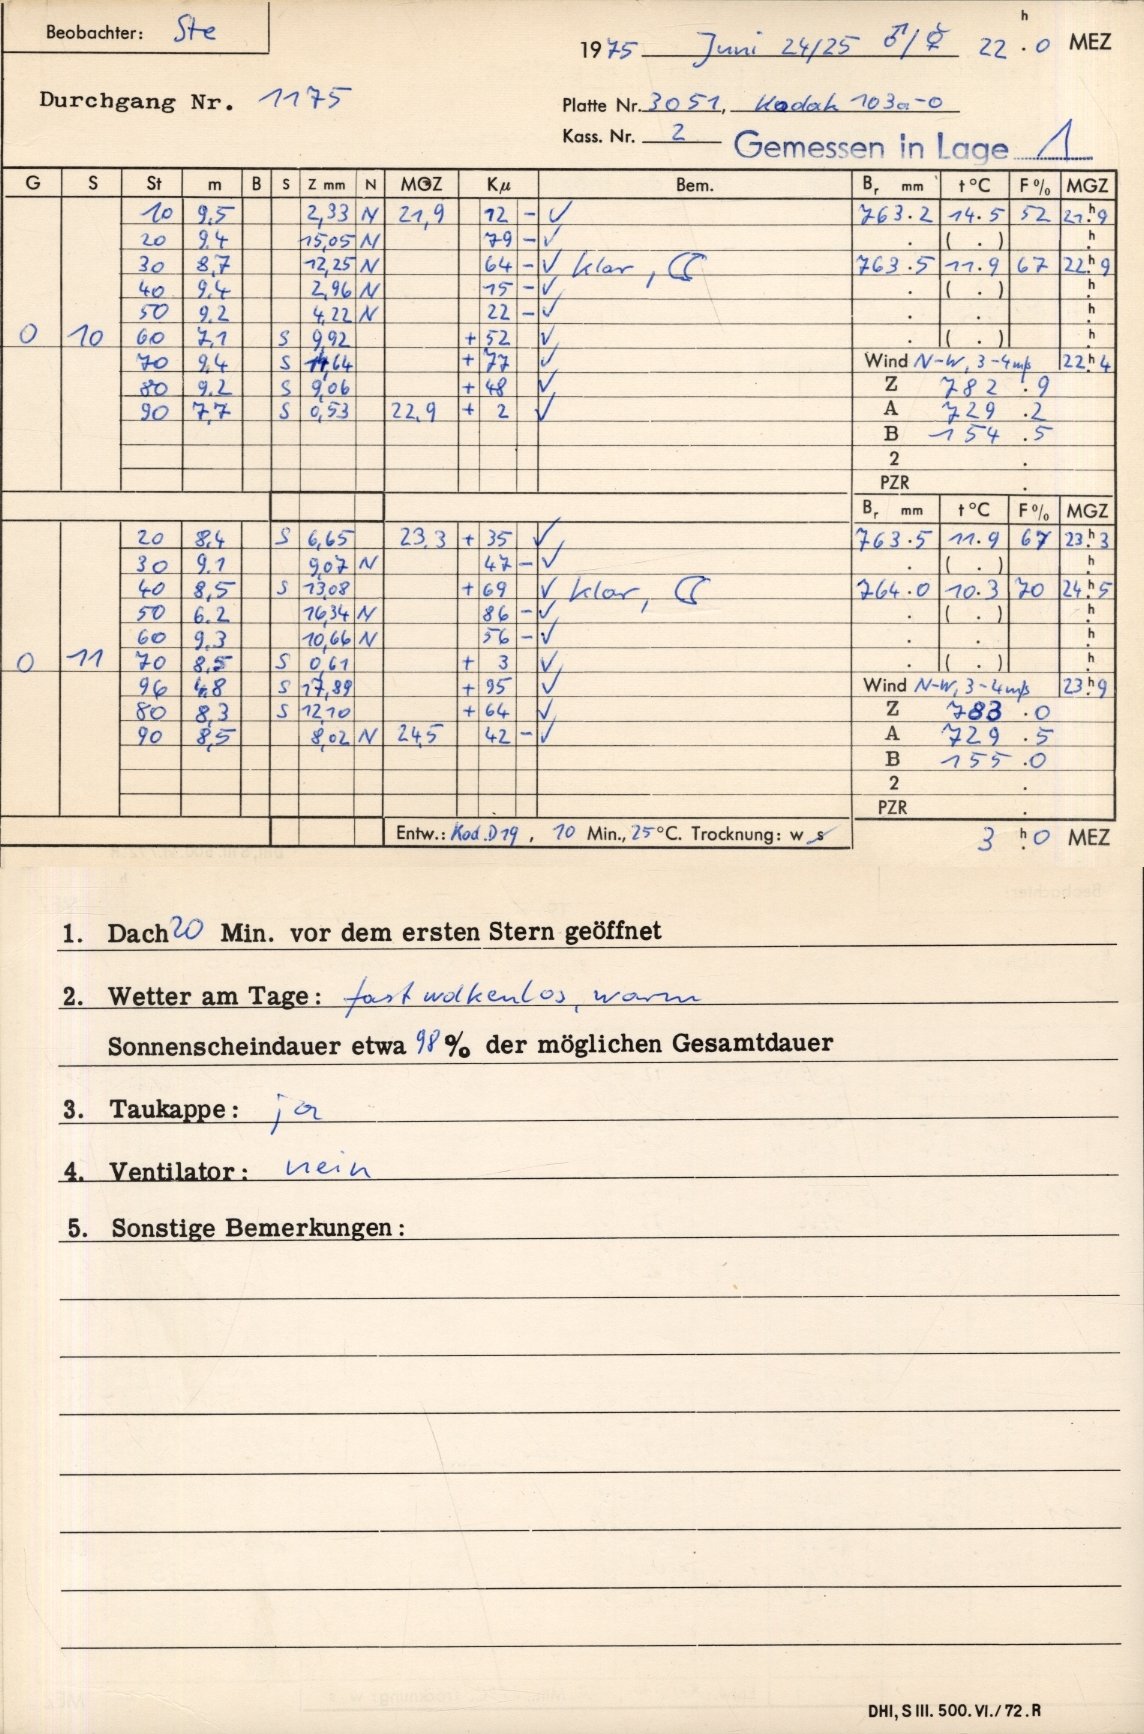 Beobachter: Ste
1975 Juni 24/25 ♂/☿ 22 h . 0 MEZ
Durchgang Nr. 1175
Platte Nr. 3051, Kodak 103a-0
Kass. Nr. 2 Gemessen in Lage 1
G S St m B S Z mm N MOZ Kμ Bem. Br mm t °C F % MGZ
10 9,5 2,33 N 21,9 12 - ✓ 763.2 14.5 52 21h.9
20 9.4 15,05 N 79 - ✓ . ( . ) h.
30 8,7 12,25 N 64 - ✓ klar, ☾ 763.5 11.9 67 22h.9
40 9.4 2,96 N 15 - ✓ . ( . ) h.
50 9.2 4,22 N 22 - ✓ . . h.
0 10 60 7,1 S 9,92 + 52 ✓ . ( . ) h.
70 9,4 S 14,64 + 77 ✓ Wind N-W, 3-4 m/s 22h.4
80 9.2 S 9,06 + 48 ✓ Z 782.9
90 7,7 S 0,53 22,9 + 2 ✓ A 729.2
B 154.5
2 .
PZR .
Br mm t °C F % MGZ
20 8,4 S 6,65 23,3 + 35 ✓ 763.5 11.9 67 23h.3
30 9.1 9,07 N 47 - ✓ . ( . ) h.
40 8,5 S 13,08 + 69 ✓ klar, ☾ 764.0 10.3 70 24h.5
50 6.2 16,34 N 86 - ✓ . ( . ) h.
60 9.3 10,66 N 56 - ✓ . . h.
0 11 70 8,5 S 0,61 + 3 ✓ . ( . ) h.
96 4,8 S 17,89 + 95 ✓ Wind N-W, 3-4 m/s 23h.9
80 8,3 S 12,10 + 64 ✓ Z 783.0
90 8,5 8,02 N 24,5 42 - ✓ A 729.5
B 155.0
2 .
PZR .
Entw.: Kod. D19, 10 Min., 25 °C. Trocknung: w s 3 h. 0 MEZ
1. Dach 20 Min. vor dem ersten Stern geöffnet
2. Wetter am Tage: fast wolkenlos, warm
Sonnenscheindauer etwa 98 % der möglichen Gesamtdauer
3. Taukappe: ja
4. Ventilator: nein
5. Sonstige Bemerkungen:
DHI, S III. 500. VI. / 72. R